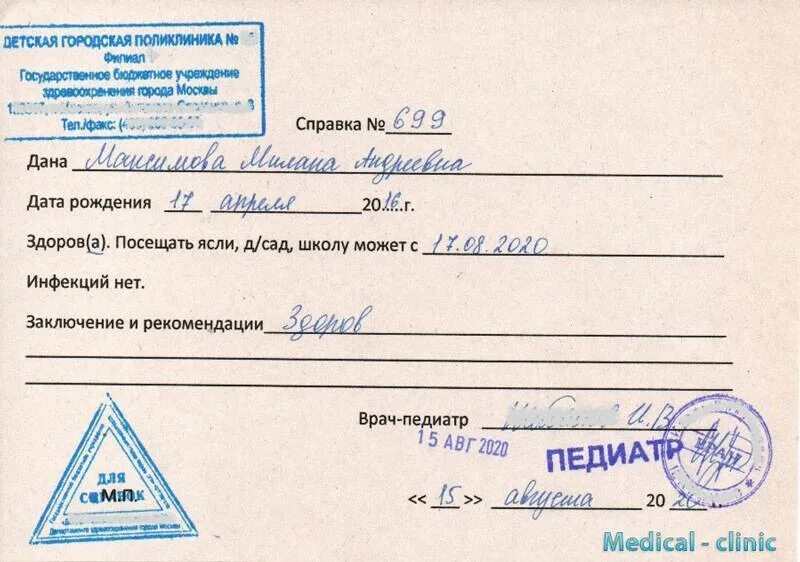 ДЕТСКАЯ ГОРОДСКАЯ ПОЛИКЛИНИКА №
Филиал
Государственное бюджетное учреждение
здравоохранения города Москвы
Тел./факс:
Справка № 699
Дана Максимова Милана Андреевна
Дата рождения 17 апреля 2016 г.
Здоров(а). Посещать ясли, д/сад, школу может с 17.08.2020
Инфекций нет.
Заключение и рекомендации Здоров
Врач-педиатр И.В.
15 АВГ 2020
ПЕДИАТР
ВРАЧ
ДЛЯ
СПРАВОК
М.П.
Департамент здравоохранения города Москвы
<< 15 >> августа 2020
Medical - clinic